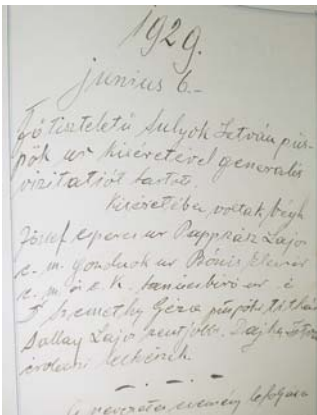 1929.
junius 6.-
Főtiszteletü Sulyok István püs-
pök ur kiséretével generalis
vizitatiót tartott.
Kiséretében voltak Végh
József esperes ur Pappszász Lajos
e. m. gondnok ur Bónis Elemér
e. m. és e. k. tanácsbiró ur
Szemethy Géza püspöki titkár
Sallay Lajos Dajka István
lelkészek
- . - . -